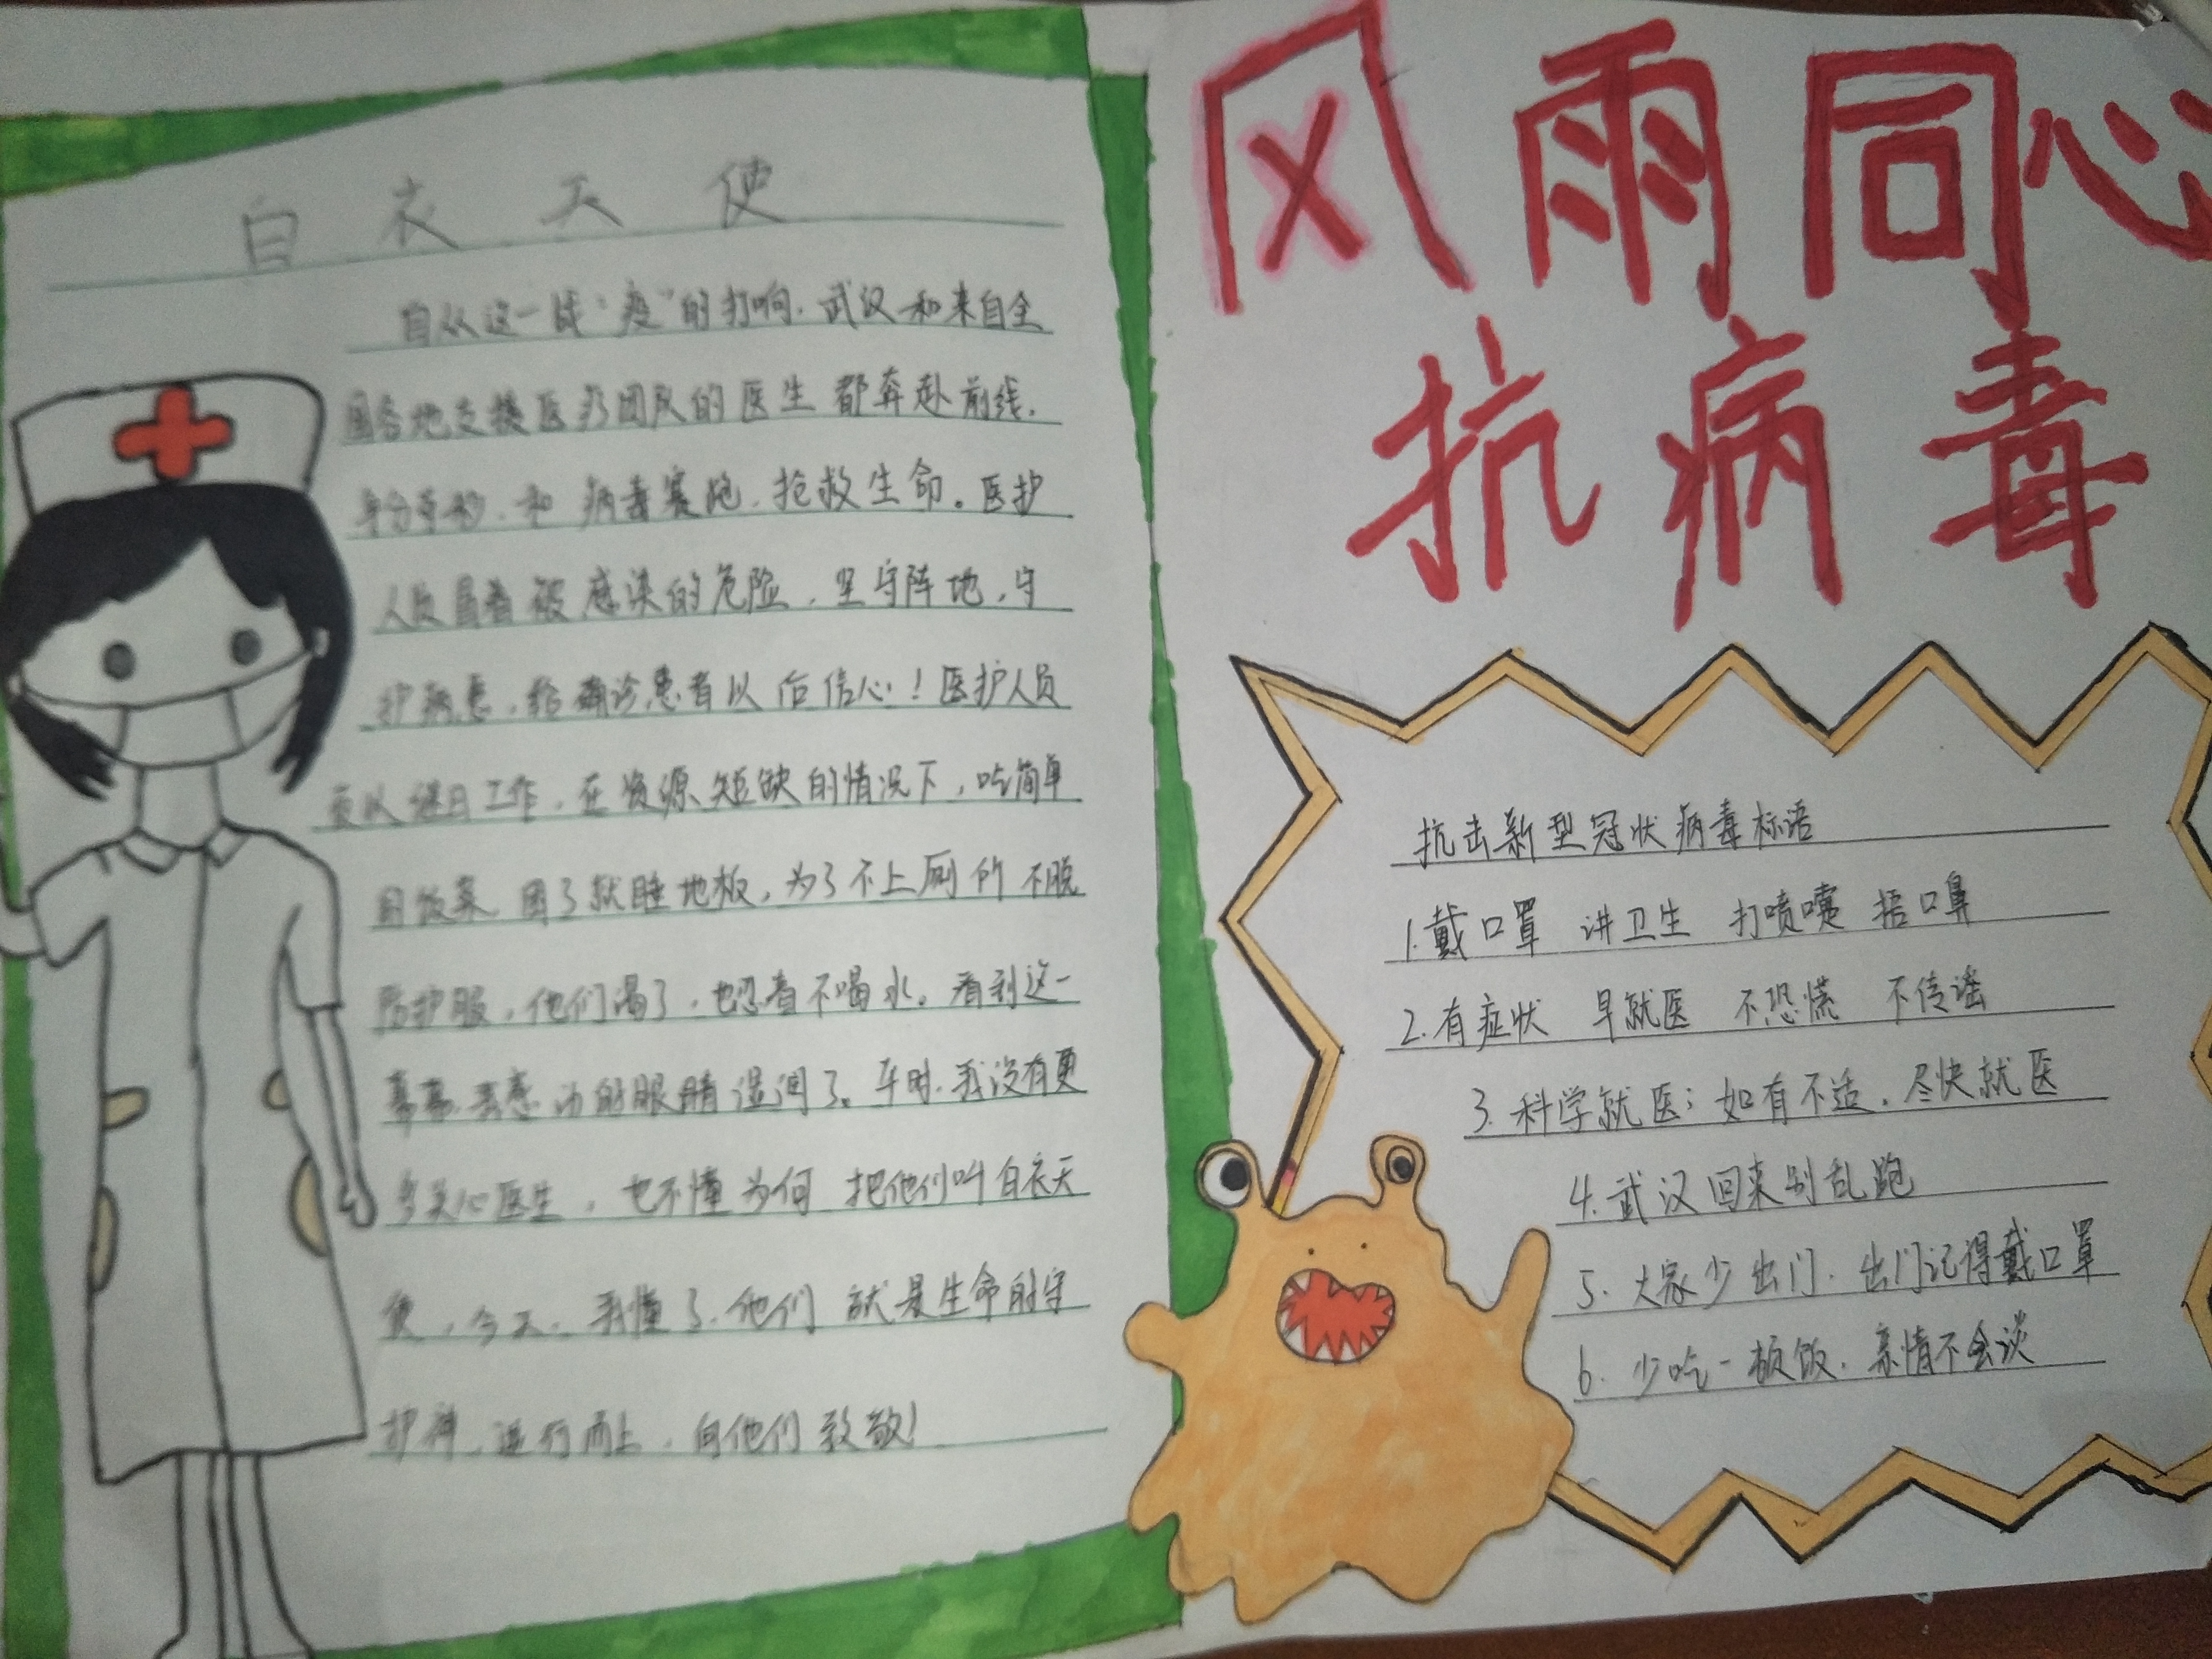 风雨同心
抗病毒
白衣天使
自从这一战“疫”的打响，武汉和来自全
国各地支援医疗团队的医生都奔赴前线，
争分夺秒，和病毒赛跑，抢救生命。医护
人员冒着被感染的危险，坚守阵地，守
护病患，给确诊患者以信心！医护人员
夜以继日工作，在资源短缺的情况下，吃简单
的饭菜，困了就睡地板，为了不上厕所不脱
防护服，他们渴了，也忍着不喝水。看到这一
幕幕，我感动的眼睛湿润了。平时，我没有更
多关心医生，也不懂为何把他们叫白衣天
使，今天，我懂了，他们就是生命的守
护神，逆行而上，向他们致敬！
抗击新型冠状病毒标语
1.戴口罩 讲卫生 打喷嚏 捂口鼻
2.有症状 早就医 不恐慌 不传谣
3.科学就医：如有不适，尽快就医
4.武汉回来别乱跑
5.大家少出门，出门记得戴口罩
6.少吃一顿饭，亲情不会淡